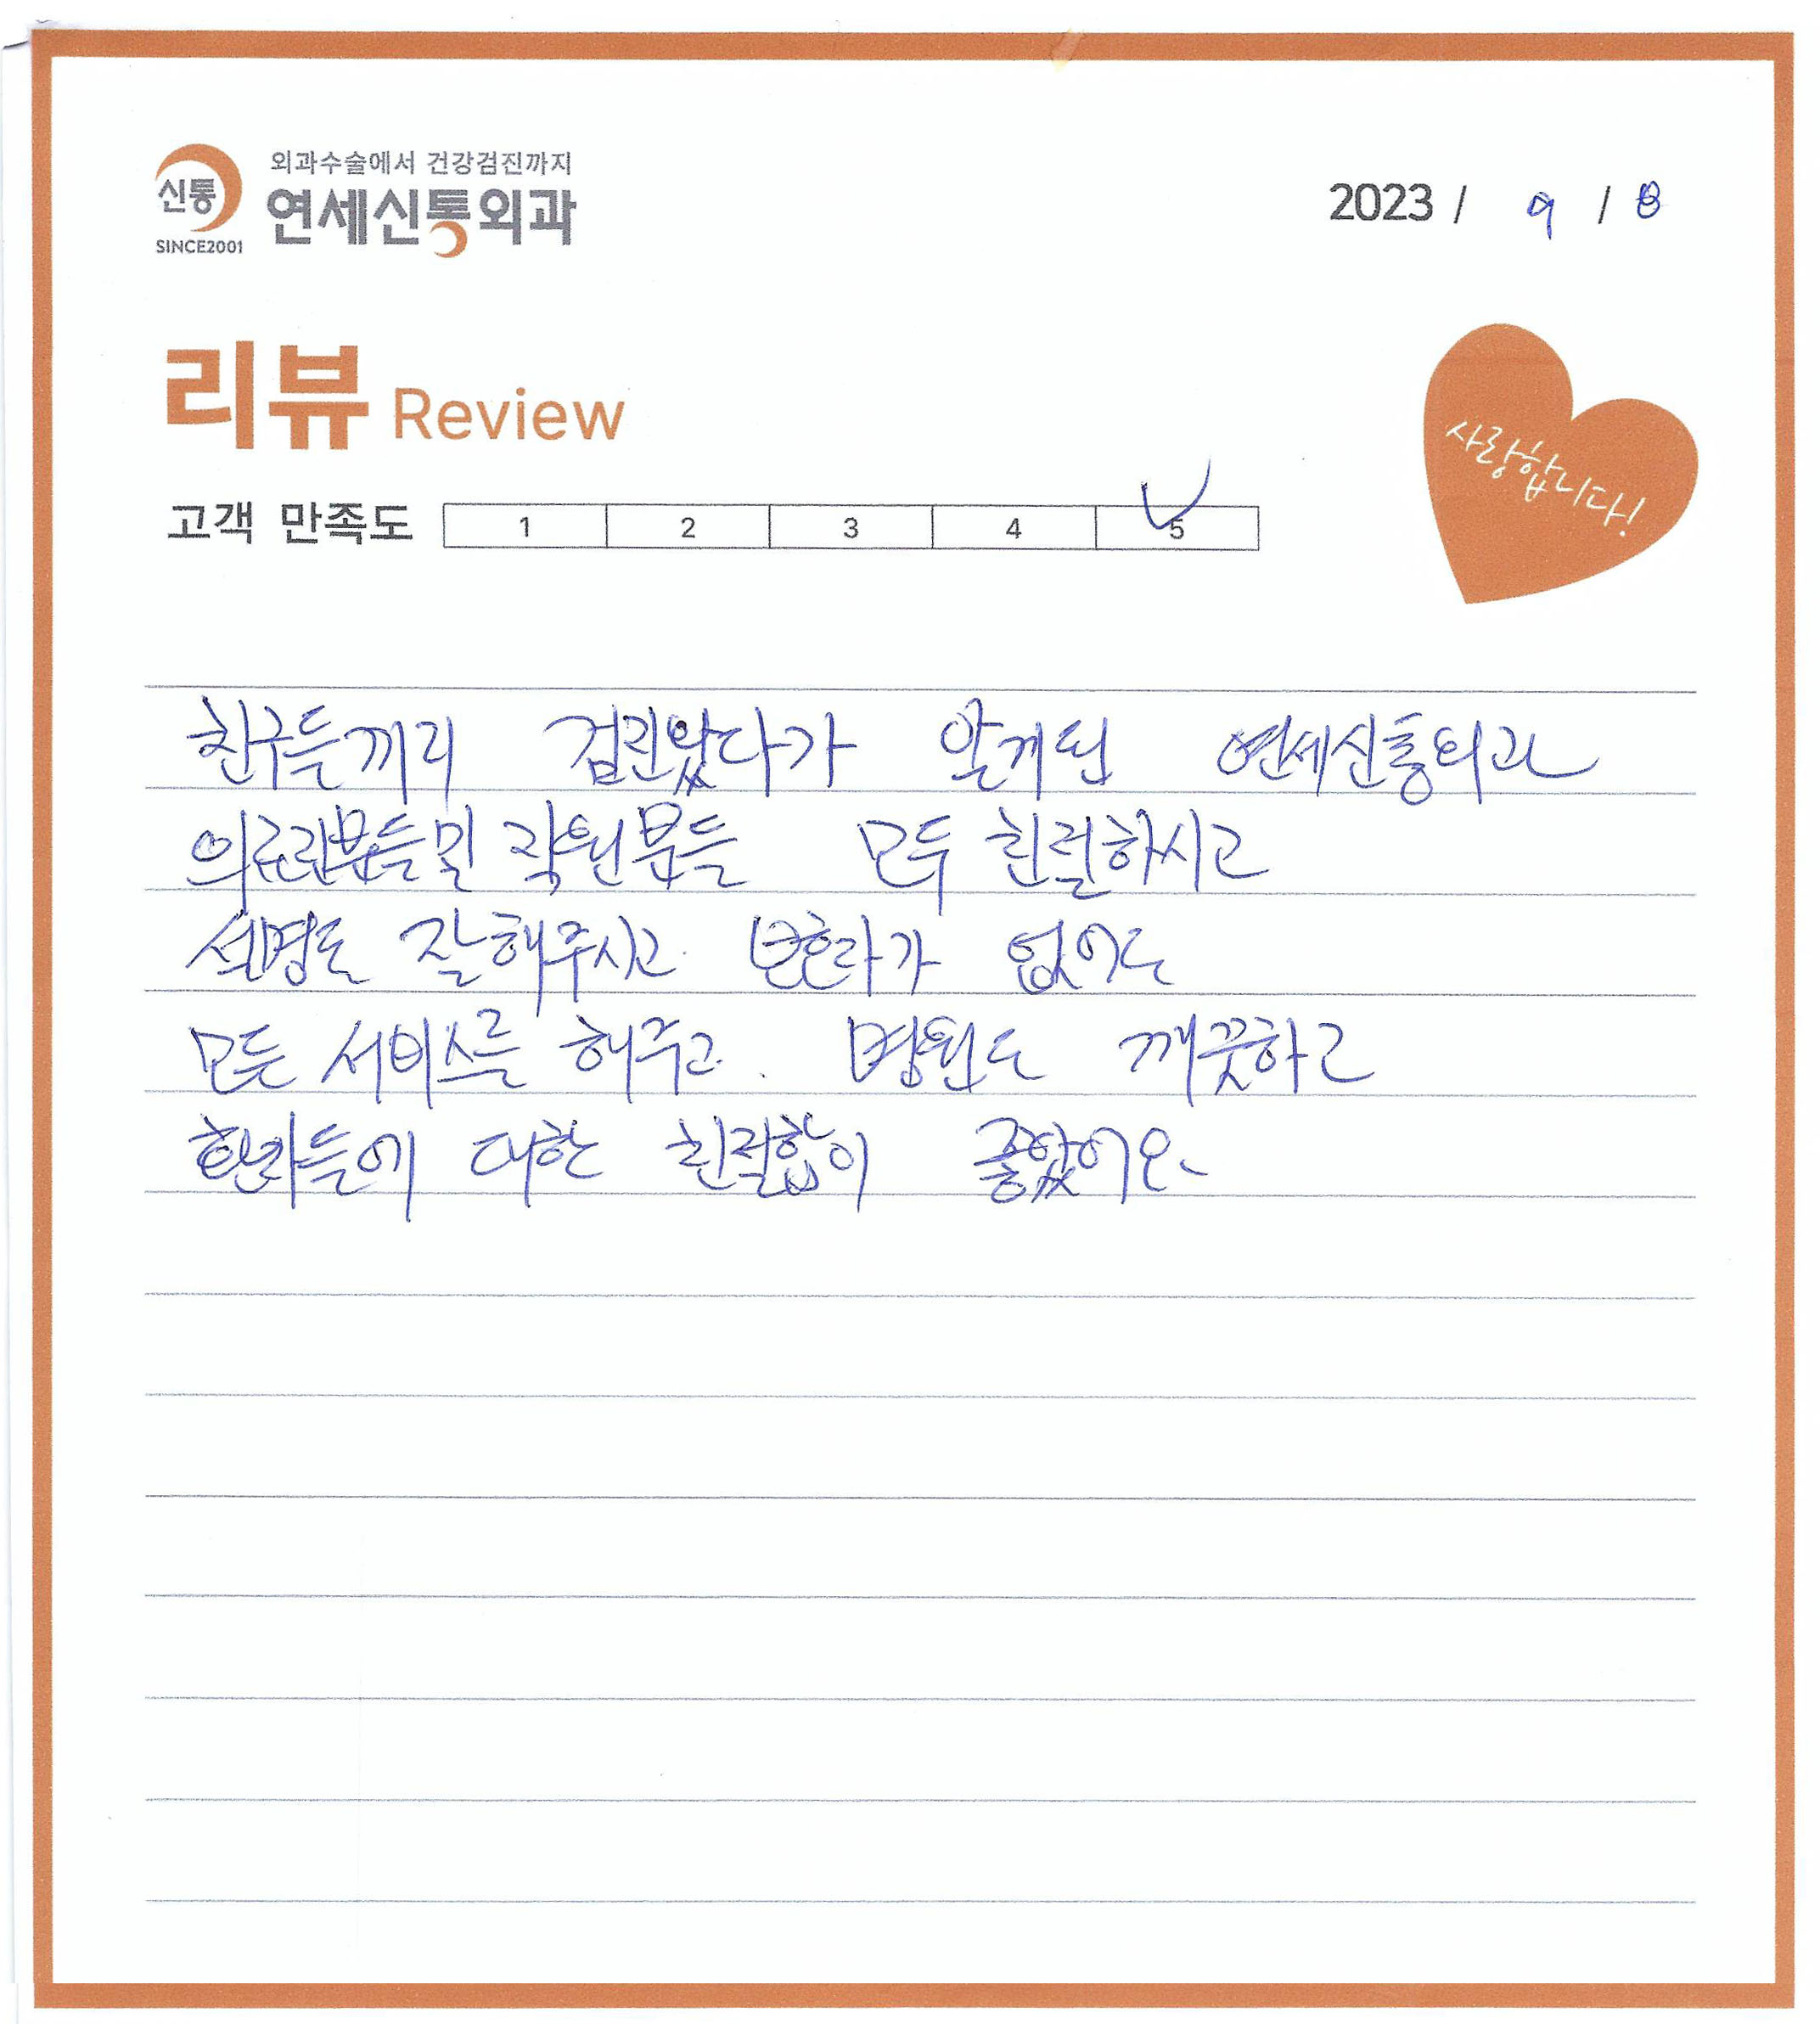 신통
SINCE2001
외과수술에서 건강검진까지
연세신통외과
2023 / 9 / 8
리뷰 Review
사랑합니다!
고객 만족도 1 2 3 4 5
친구들끼리 검진왔다가 알게된 연세신통외과
의료진분들및 직원분들 모두 친절하시고
설명도 잘해주시고 보호자가 없어도
모든 서비스를 해주고. 병원도 깨끗하고
환자들에 대한 친절함이 좋았어요